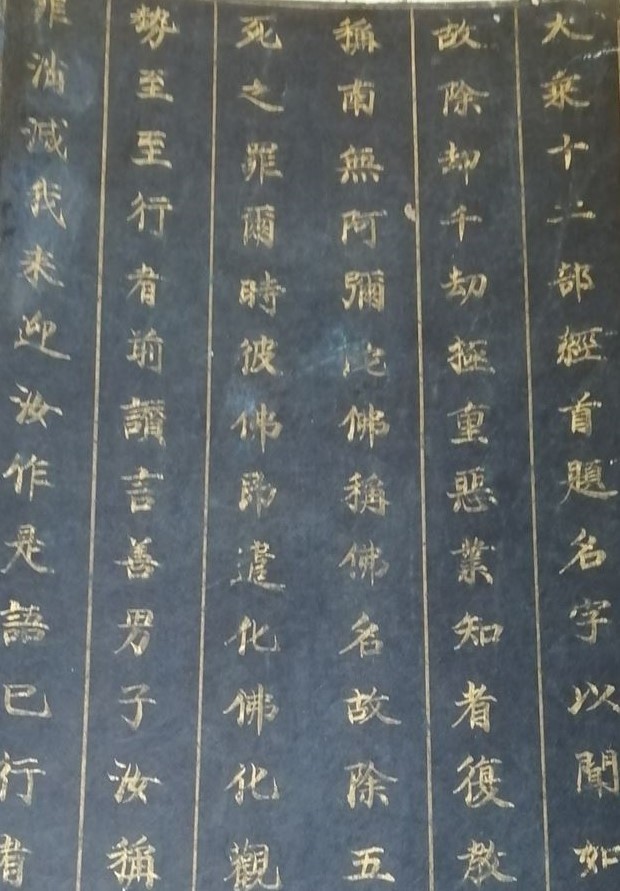 大乘十二部經首題名字以聞如
故除却千劫極重惡業知者復教
稱南無阿彌陀佛稱佛名故除五
死之罪爾時彼佛即遣化佛化觀
勢至至行者前讚言善男子汝稱
罪消滅我来迎汝作是語已行者